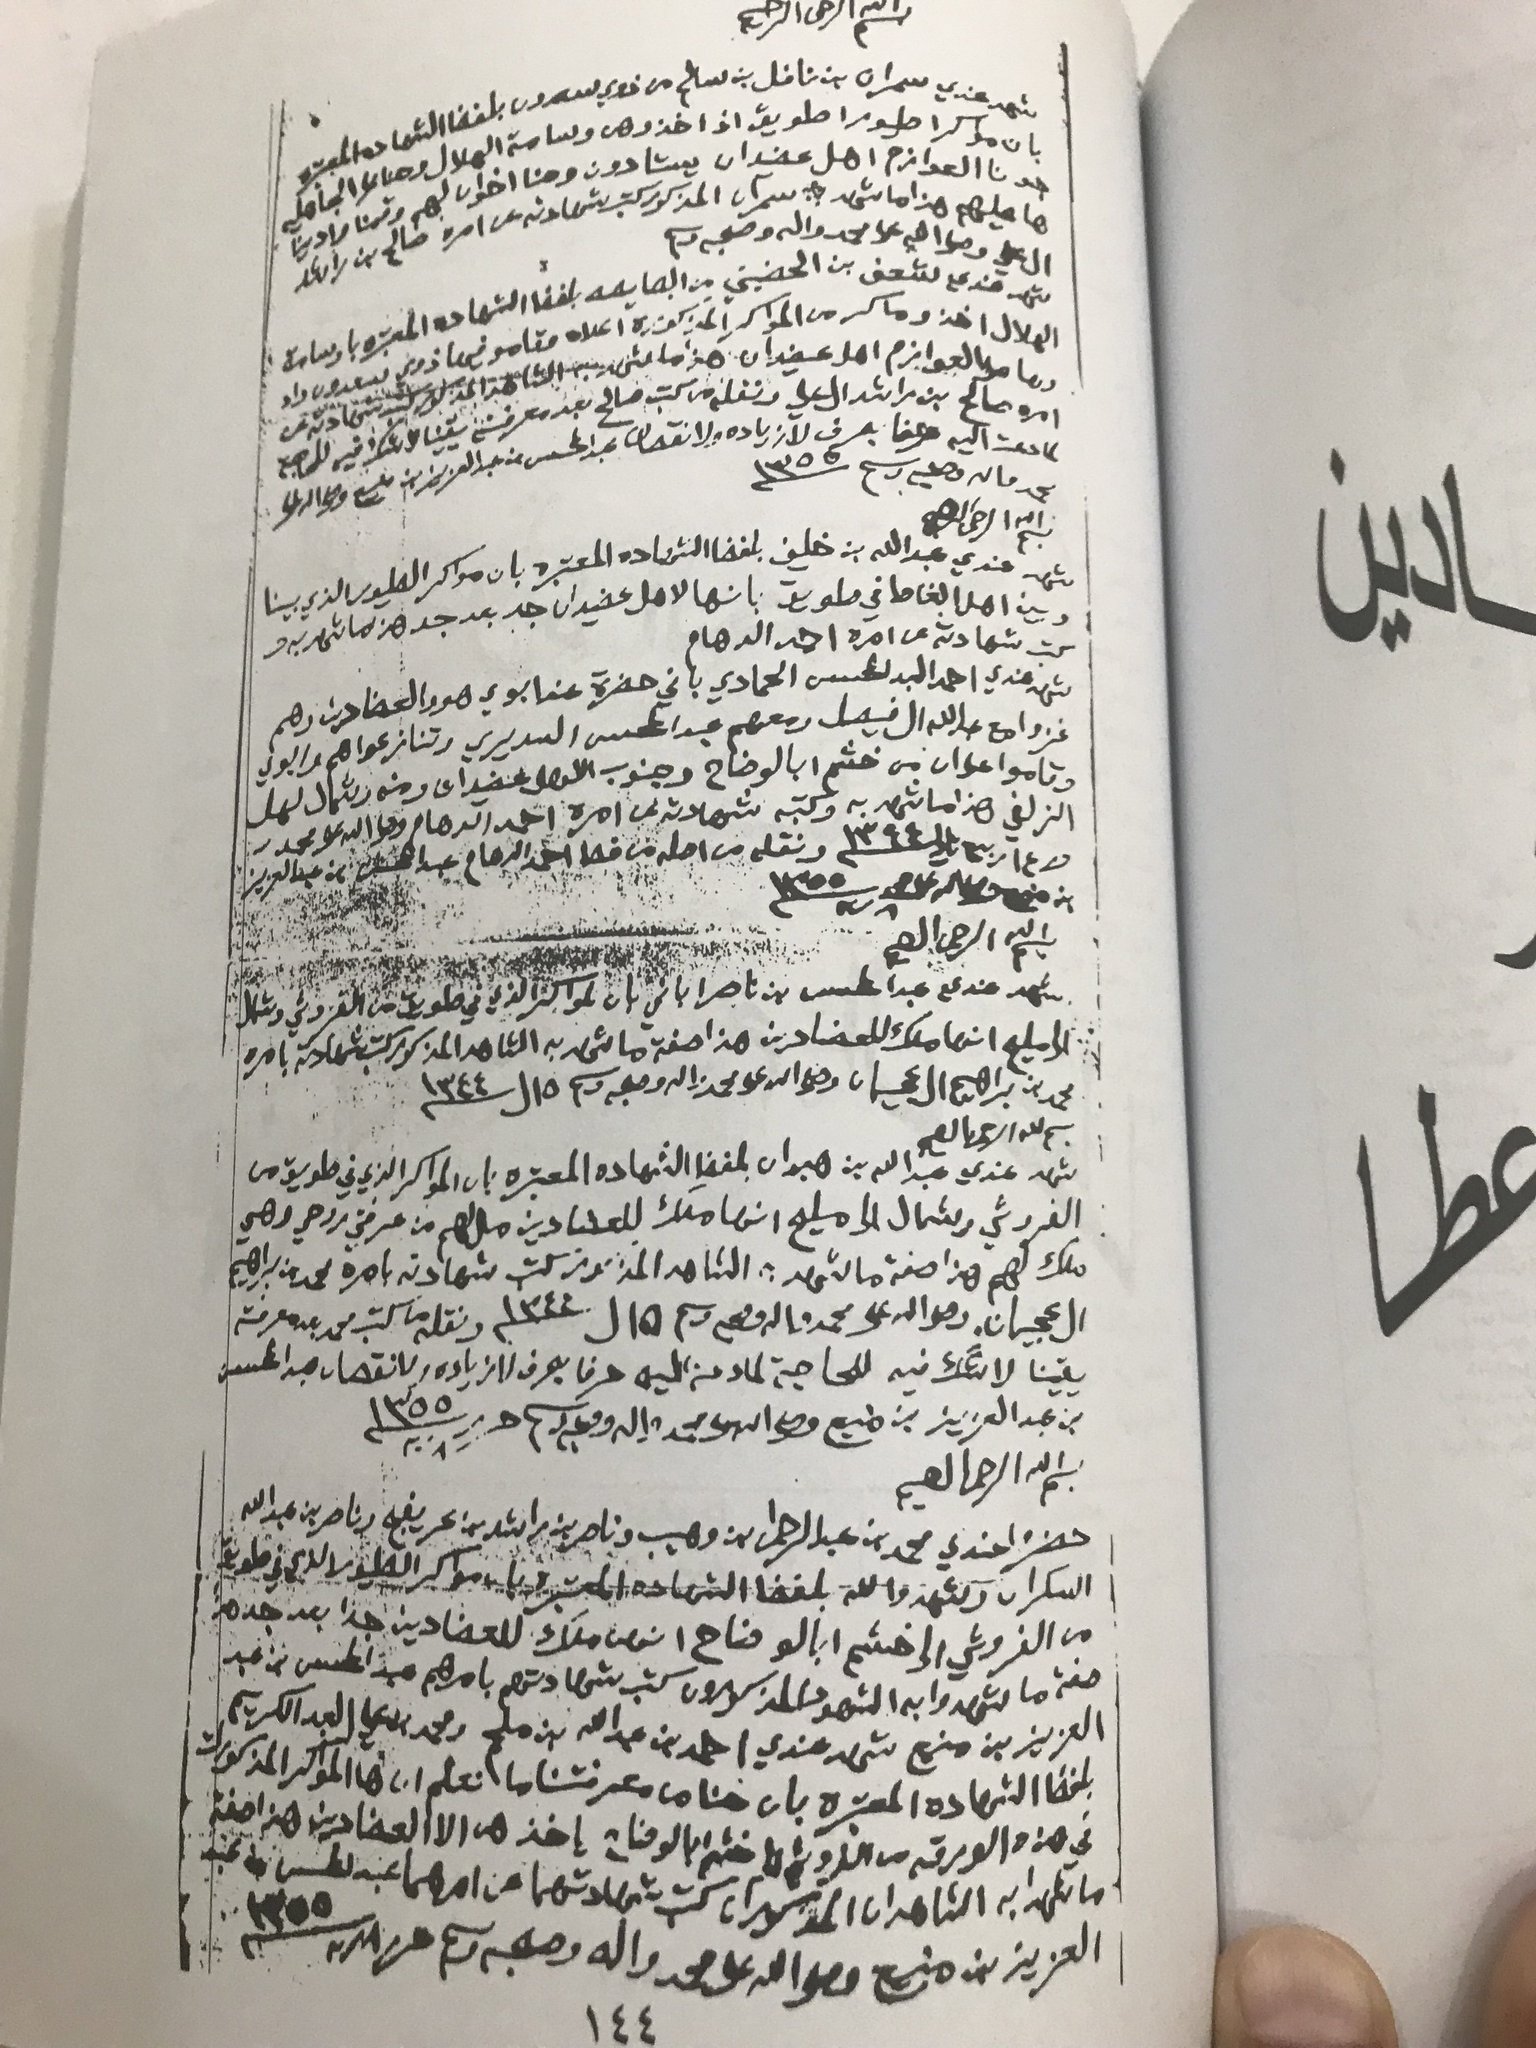 بسم الله الرحمن الرحيم
شهد عندي سمران بن نافل بن سالم من ذوي سعدون بلفظ الشهاده المعتبره
بان مواكر اطيور اطويق اذا اخذوهن وسامة الهلال وحنا على الجاهليه
جونا العوازم اهل عضيدان ينشادون وحنا اخوان لهم وقمنا وادينا
ها عليهم هذا ما شهد به سمران المذكور كتب شهادته عن امره صالح بن راشد
ال علي وصلى الله على محمد واله وصحبه وسلم
شهد عندي لشعف بن الحضيني من الصايمه بلفظ الشهاده المعتبره باوسامة
الهلال اخذوا ماكر من المواكر المذكوره اعلاه وقاموا فيها ذوي سعدون واد
وها على العوازم اهل عضيدان هذا ما شهد به الشاهد المذكور كتب شهادته عن
امره صالح بن راشد ال علي ونقله من كتب صالح بعد معرفته يقينا لا شك فيه للحاجة
لما دعت اليه حرفا بحرف لا زياده ولا نقصان عبد المحسن بن عبد العزيز بن منيع وصلى الله على
محمد واله وصحبه وسلم ١٣٥٥
بسم الله الرحمن الرحيم
شهد عندي عبدالله بن خليف بلفظ الشهاده المعتبره بان مواكر الطيور الذي بيننا
وبين اهل الغاط في طويق بانها لاهل عضيدان جد بعد جد هذا ما شهد به و
كتب شهادته عن امره احمد الدهام
شهد عندي احمد البد لمحسن الحمادي باني حضرة عند ابوي هو والعضادين وهم
غزوا مع عبدالله ال فيصل ومعهم عبد المحسن السديري وتنازعوا هم وابوي
وقاموا على ان من خشم ابالوضاح وجنوب لاهل عضيدان ومنه وشمال لهل
الزلفي هذا ما شهد به وكتبه شهادته عن امره احمد الدهام وصلى الله على محمد
ربيع ١٣٤٤ ونقله من اصله من خط احمد الدهام عبد المحسن بن عبد العزيز
بن منيع وصلى الله على محمد ٨ ١٣٥٥
بسم الله الرحمن الرحيم
شهد عندي عبد المحسن بن ناصر اباني بان المواكر الذي في طويق من الفروثي وشمال
الى مليح انها ملك للعضادين هذا صفة ما شهد به الشاهد المذكور كتب شهادته بامره
محمد بن براهيم ال عجيمان وصلى الله على محمد واله وصحبه وسلم ١٥ ل ١٣٤٤
بسم الله الرحمن الرحيم
شهد عندي عبدالله بن هبدان بلفظ الشهاده المعتبره بان المواكر الذي في طويق من
الفروثي وشمال الى مليح انها ملك للعضادين ملالهم من عرفتي روحي وهي
ملك لهم هذا صفة ما شهد به الشاهد المذكور كتب شهادته بامره محمد بن براهيم
ال عجيمان وصلى الله على محمد واله وصحبه وسلم ١٥ ل ١٣٤٤ ونقله من كتب محمد بعد معرفته
يقينا لا شك فيه للحاجية لما دعت اليه حرفا بحرف لا زياده ولا نقصان عبد المحسن
بن عبد العزيز بن منيع وصلى الله على محمد واله وصحبه وسلم حرر ٨ ١٣٥٥
بسم الله الرحمن الرحيم
حضروا عندي محمد بن عبد الرحمن بن وهيب وناصر بن راشد بن عريفج وناصر بن عبدالله
السكران وشهدوا لله بلفظ الشهاده المعتبره بان مواكر الطيور الذي في طويق
من الفروثي الى خشم ابالوضاح انهن ملك للعضادين جدا بعد جد هذا
صفة ما شهدوا به الشهود المذكورون كتب شهادتهم بامرهم عبد المحسن بن عبد
العزيز بن منيع شهد عندي احمد بن عبدالله بن ملحم ومحمد بن علي العبد الكريم
بلفظ الشهاده المعتبره بان حنا من معرفتنا ما نعلم ان ها المواكر المذكورات
في هذه الورقه من الفروثي الى خشم ابالوضاح ياخذهن الا العضادين هذا صفة
ما شهدا به الشاهدان المذكوران كتب شهادتهما عن امرهما عبد المحسن بن عبد
العزيز بن منيع وصلى الله على محمد واله وصحبه وسلم حرر ٨ ١٣٥٥
١٤٤
ـادين
عطا